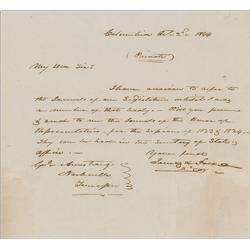 Columbia Oct. 2d 1844
(Private)
My Dear Sir:
I have occasion to refer to
the Journals of our Legislature whilst I was
a member of that body. Will you procure
& send to me the Journals of the House of
Representatives for the sessions of 1823 & 1824.
They can be had in the Secretary of State's
Office.
Yours truly
James K. Polk
Genl Armstrong
Nashville
Tennessee